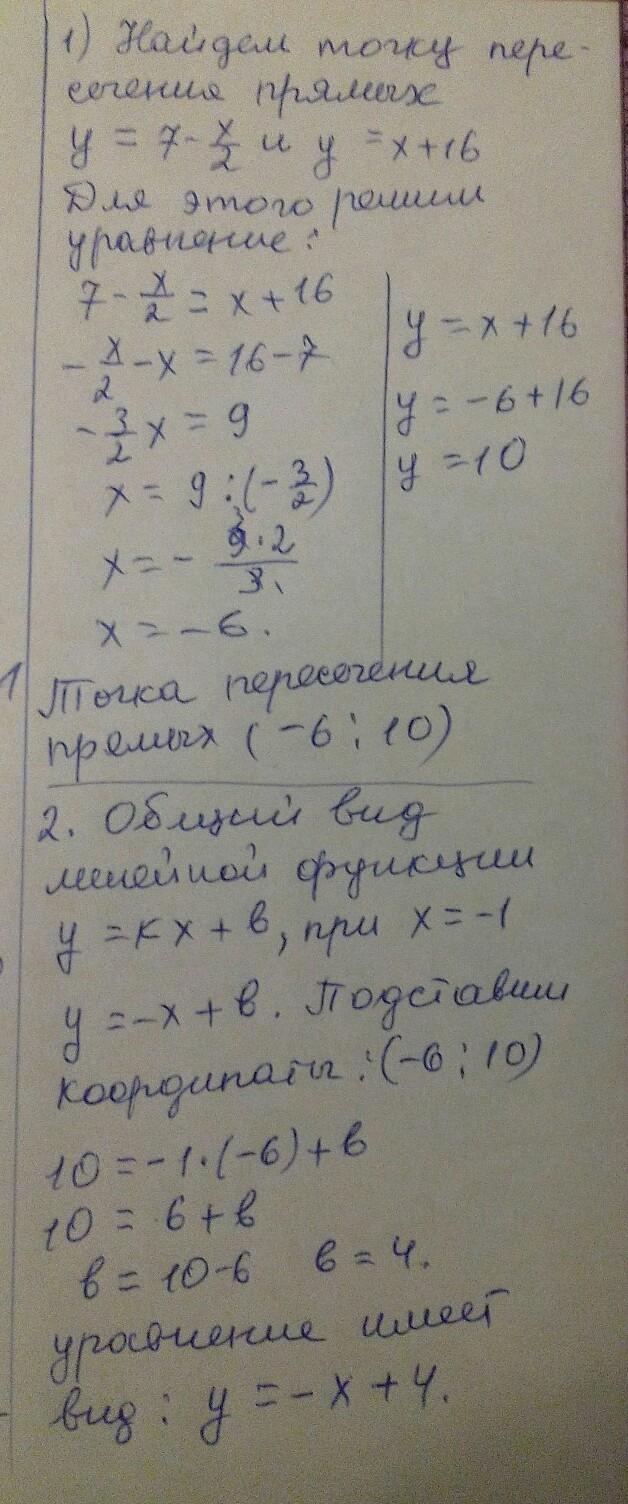 1) Найдем точку пере-
сечения прямых
y = 7 - x/2 и y = x+16
Для этого решим
уравнение:
7 - x/2 = x + 16
- x/2 - x = 16 - 7
- 3/2 x = 9
x = 9 : (- 3/2)
x = - 9·2/3
x = -6.
y = x+16
y = -6+16
y = 10
Точка пересечения
прямых (-6; 10)
2. Общий вид
линейной функции
y = кx + в, при x = -1
y = -x + в. Подставим
координаты: (-6; 10)
10 = -1·(-6) + в
10 = 6 + в
в = 10-6 в = 4.
уравнение имеет
вид: y = -x + 4.